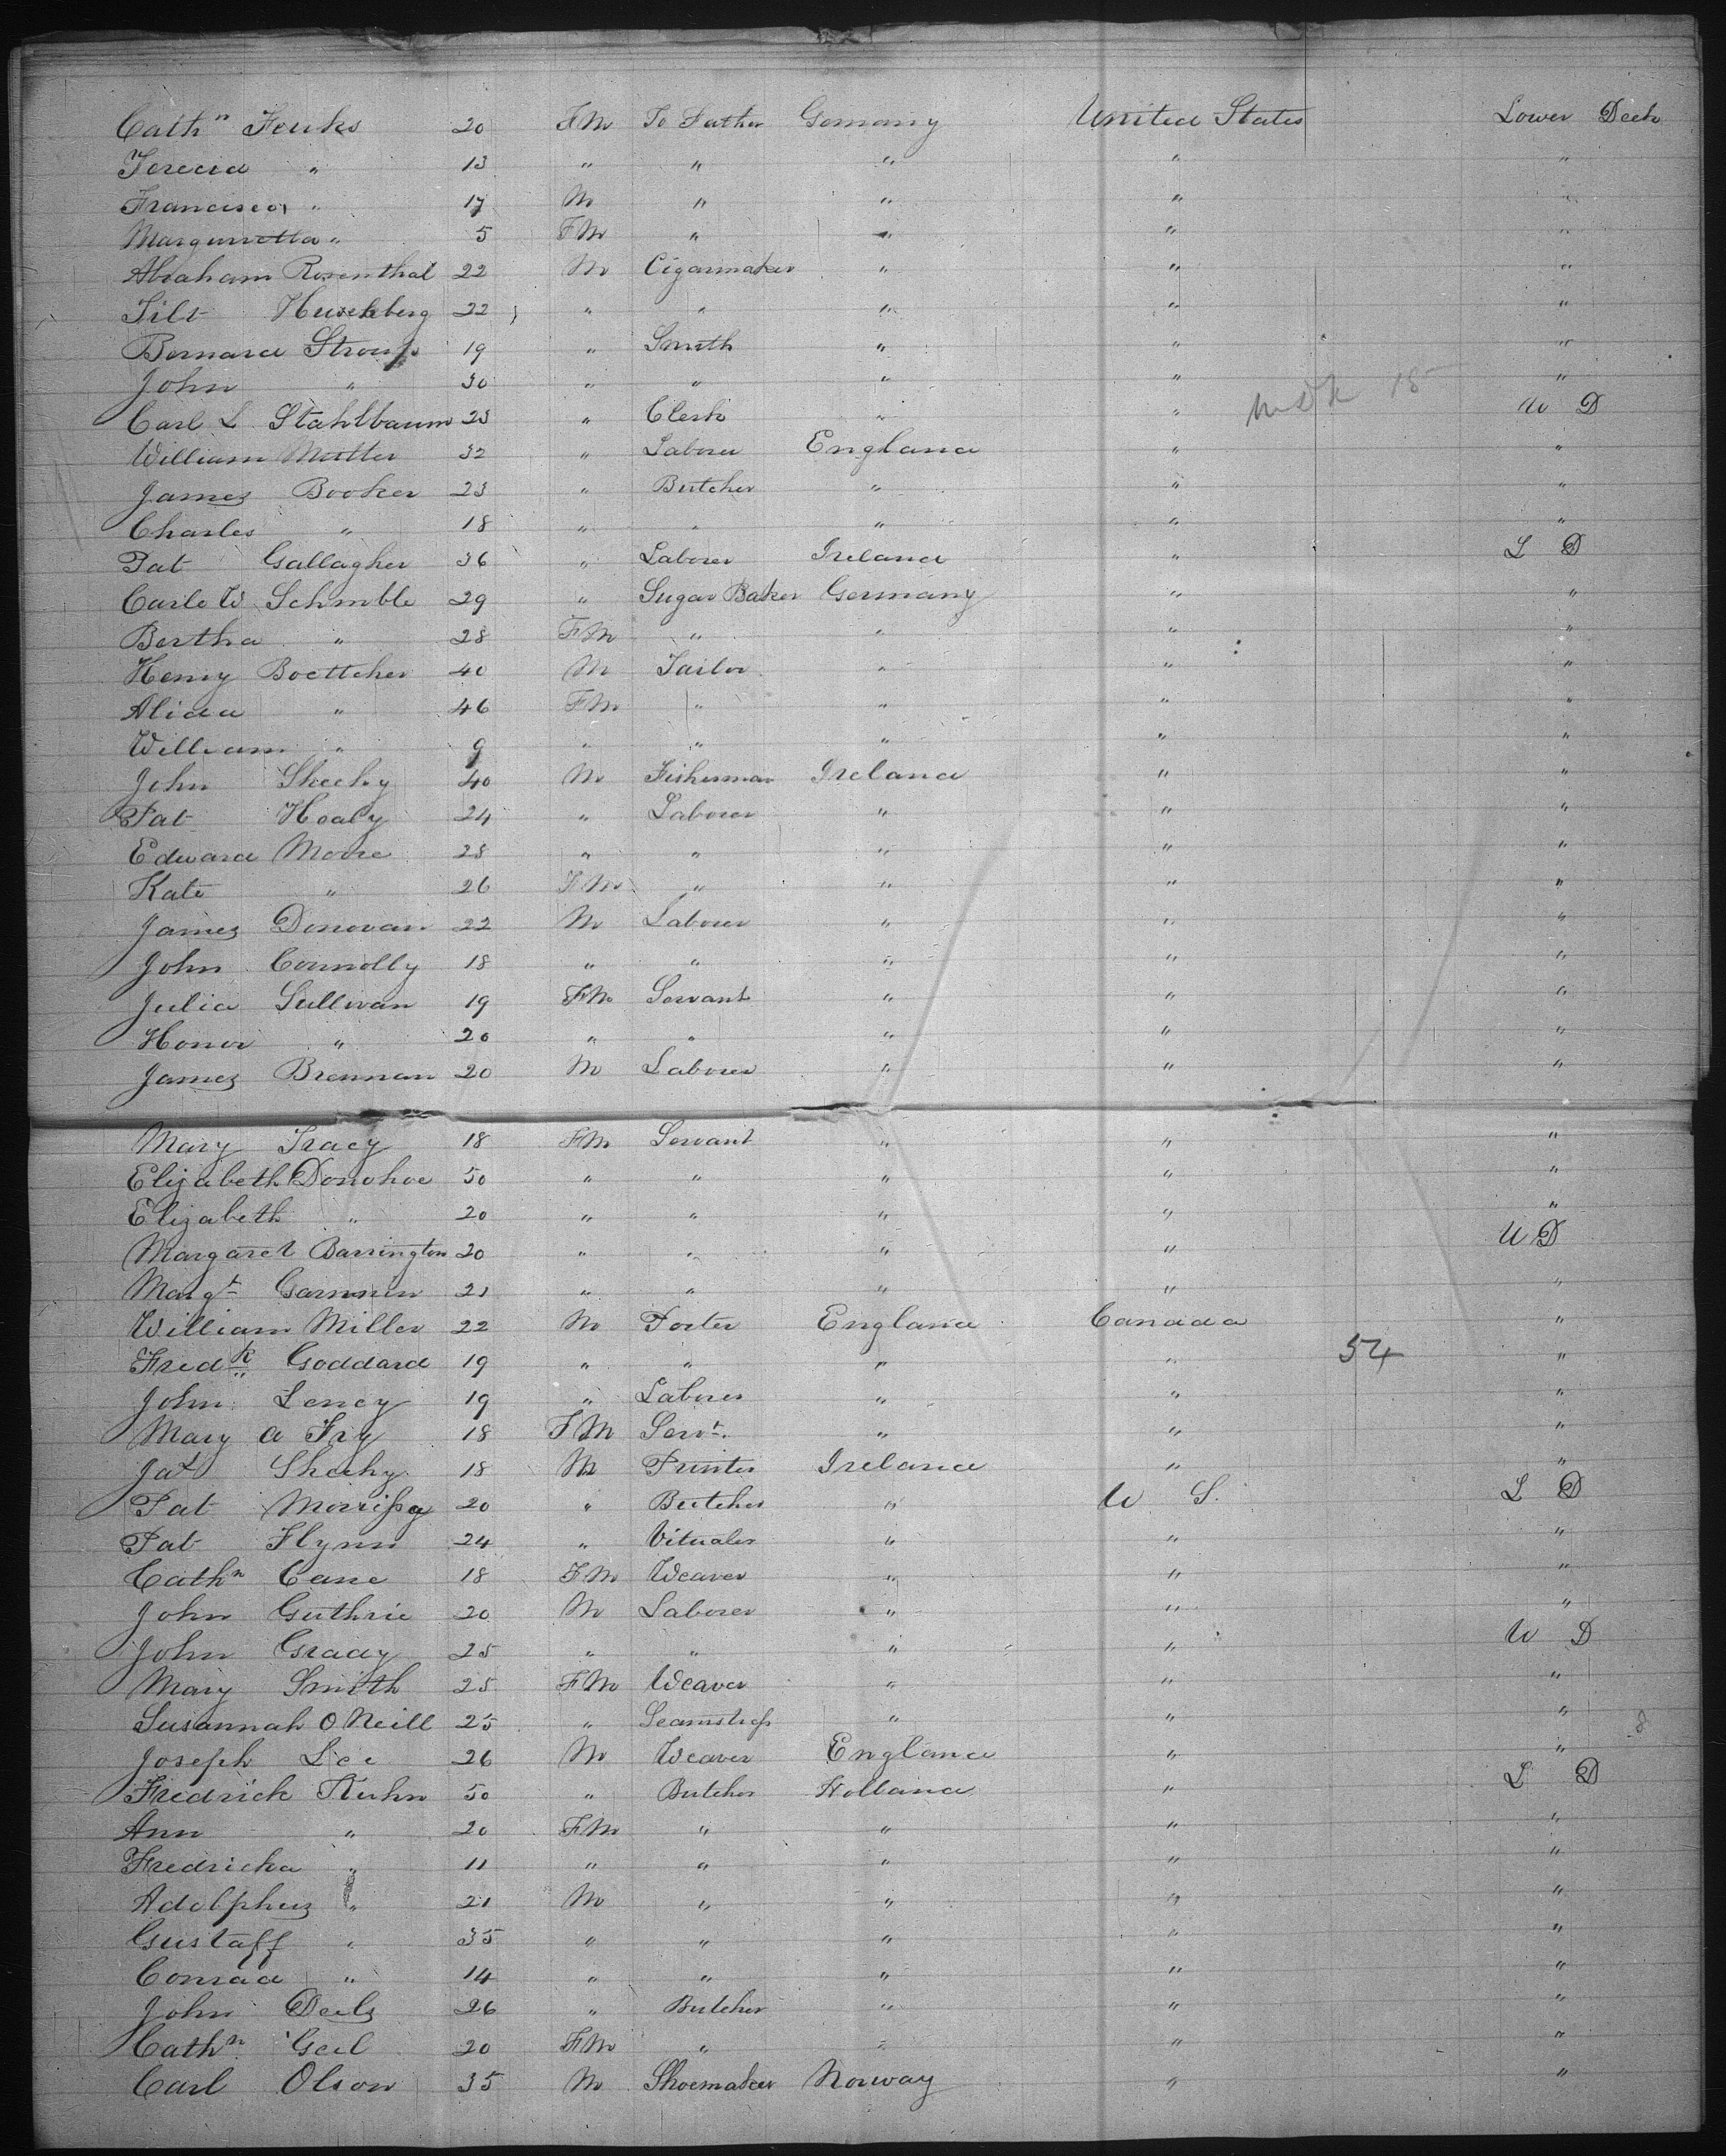 Cathn Fouks 20 FM To Father Gemany United States Lower Deck
Terecia " 13 " " " " "
Francisca " 17 M " " " "
Margurretta " 5 FM " " " "
Abraham Rosenthal 22 M Cigarmaker " " "
Silt Huschberg 22 " " " " "
Bernard Stroup 19 " Smith " " "
John " 30 " " " " "
Carl L Stahlbaum 23 " Clerk " " 18 U D
William Mutter 32 " Laborer England " "
James Booker 23 " Butcher " " "
Charles " 18 " " " " "
Pat Gallagher 36 " Laborer Ireland " L D
Carle W Schmble 29 " Sugar Baker Germany " "
Bertha " 28 FM " " " "
Henry Boettcher 40 M Tailor " " "
Alida " 46 FM " " " "
William " 9 " " " " "
John Sheehy 40 M Fisherman Ireland " "
Pat Healy 24 " Laborer " " "
Edward Moore 28 " " " " "
Kate " 26 FM " " " "
James Donovan 22 M Laborer " " "
John Connolly 18 " " " " "
Julia Sullivan 19 FM Servant " " "
Honor " 20 " " " " "
James Brennan 20 M Laborer " " "
Mary Tracy 18 FM Servant " " "
Elizabeth Donohoe 50 " " " " "
Elizabeth " 20 " " " " "
Margaret Barrington 20 " " " " U D
Margt Gammin 21 " " " " "
William Miller 22 M Porter England Canada "
Fredk Goddard 19 " " " " 54 "
John Leney 19 " Laborer " " "
Mary A Fry 18 FM Servt. " " "
Jas Sheehy 18 M Printer Ireland " "
Pat Morrissy 20 " Butcher " U S. L D
Pat Flynn 24 " Vitualer " " "
Cathn Cane 18 FM Weaver " " "
John Guthrie 20 M Laborer " " "
John Grady 25 " " " " U D
Mary Smith 25 FM Weaver " " "
Susannah O Neill 25 " Seamstress " " "
Joseph Lee 26 M Weaver England " "
Fredrick Kuhn 50 " Butcher Holland " L D
Ann " 20 FM " " " "
Fredricka " 11 " " " " "
Adolphus " 21 M " " " "
Gustaff " 35 " " " " "
Conrad " 14 " " " " "
John Deels 26 " Butcher " " "
Cathn Geil 20 FM " " " "
Carl Olson 35 M Shoemaker Norway " "